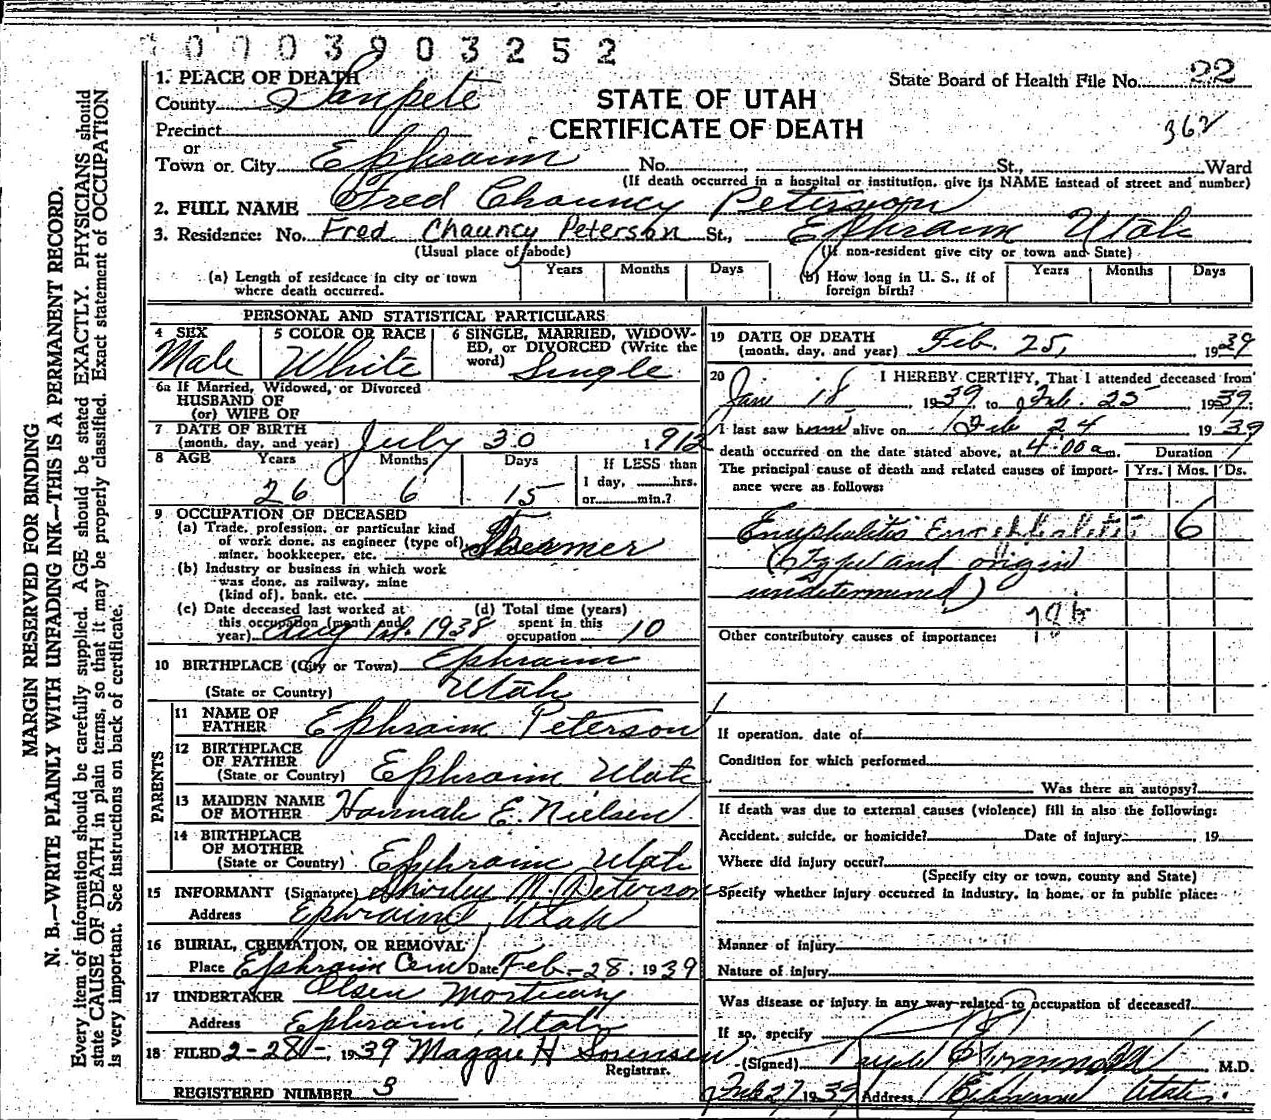 0 0 0 3 9 0 3 2 5 2
1. PLACE OF DEATH
County Sanpete
State Board of Health File No. 22
STATE OF UTAH
CERTIFICATE OF DEATH
362
Precinct
or
Town or City Ephraim No. St., Ward
(If death occurred in a hospital or institution, give its NAME instead of street and number)
2. FULL NAME Fred Chauncy Peterson
3. Residence: No. Fred Chauncy Peterson St., Ephraim Utah
(Usual place of abode) (If non-resident give city or town and State)
(a) Length of residence in city or town where death occurred. Years Months Days
(b) How long in U. S., if of foreign birth? Years Months Days
PERSONAL AND STATISTICAL PARTICULARS
4 SEX Male
5 COLOR OR RACE White
6 SINGLE, MARRIED, WIDOWED, or DIVORCED (Write the word) Single
6a If Married, Widowed, or Divorced
HUSBAND OF
(or) WIFE OF
7 DATE OF BIRTH
(month, day, and year) July 30 1912
8 AGE Years 26 Months 6 Days 15 If LESS than
1 day, hrs.
or min.?
9 OCCUPATION OF DECEASED
(a) Trade, profession, or particular kind
of work done, as engineer (type of),
miner, bookkeeper, etc.
(b) Industry or business in which work
was done, as railway, mine
(kind of), bank, etc.
(c) Date deceased last worked at
this occupation (month and
year) Aug 1st. 1938
(d) Total time (years)
spent in this
occupation 10
10 BIRTHPLACE (City or Town) Ephraim
(State or Country) Utah
PARENTS
11 NAME OF
FATHER Ephraim Peterson
12 BIRTHPLACE
OF FATHER
(State or Country) Ephraim Utah
13 MAIDEN NAME
OF MOTHER Hannah E. Nielsen
14 BIRTHPLACE
OF MOTHER
(State or Country) Ephraim Utah
15 INFORMANT (Signature) Shirley M. Peterson
Address Ephraim, Utah
16 BURIAL, CREMATION, OR REMOVAL
Place Ephraim Cem Date Feb-28. 1939
17 UNDERTAKER Olsen Mortuary
Address Ephraim, Utah
18 FILED 2-28-, 1939 Maggie H Sorensen
Registrar.
REGISTERED NUMBER 3
19 DATE OF DEATH
(month, day, and year) Feb. 25, 1939
20 I HEREBY CERTIFY, That I attended deceased from
Jan 18, 1939 to Feb. 25 1939
I last saw him alive on Feb 24 1939
death occurred on the date stated above, at 4:00 a.m.
Duration
The principal cause of death and related causes of importance were as follows: Yrs. Mos. Ds.
Encephalitis Encephalitis 6
(Type and origin
undetermined)
Other contributory causes of importance:
If operation, date of
Condition for which performed
Was there an autopsy?
If death was due to external causes (violence) fill in also the following:
Accident, suicide, or homicide? Date of injury: , 19
Where did injury occur?
(Specify city or town, county and State)
Specify whether injury occurred in industry, in home, or in public place:
Manner of injury
Nature of injury
Was disease or injury in any way related to occupation of deceased?
If so, specify
(Signed) M.D.
Feb 27 1939 Address Ephraim Utah.
MARGIN RESERVED FOR BINDING
N. B.—WRITE PLAINLY WITH UNFADING INK—THIS IS A PERMANENT RECORD.
Every item of information should be carefully supplied. AGE should be stated EXACTLY. PHYSICIANS should
state CAUSE OF DEATH in plain terms, so that it may be properly classified. Exact statement of OCCUPATION
is very important. See instructions on back of certificate.